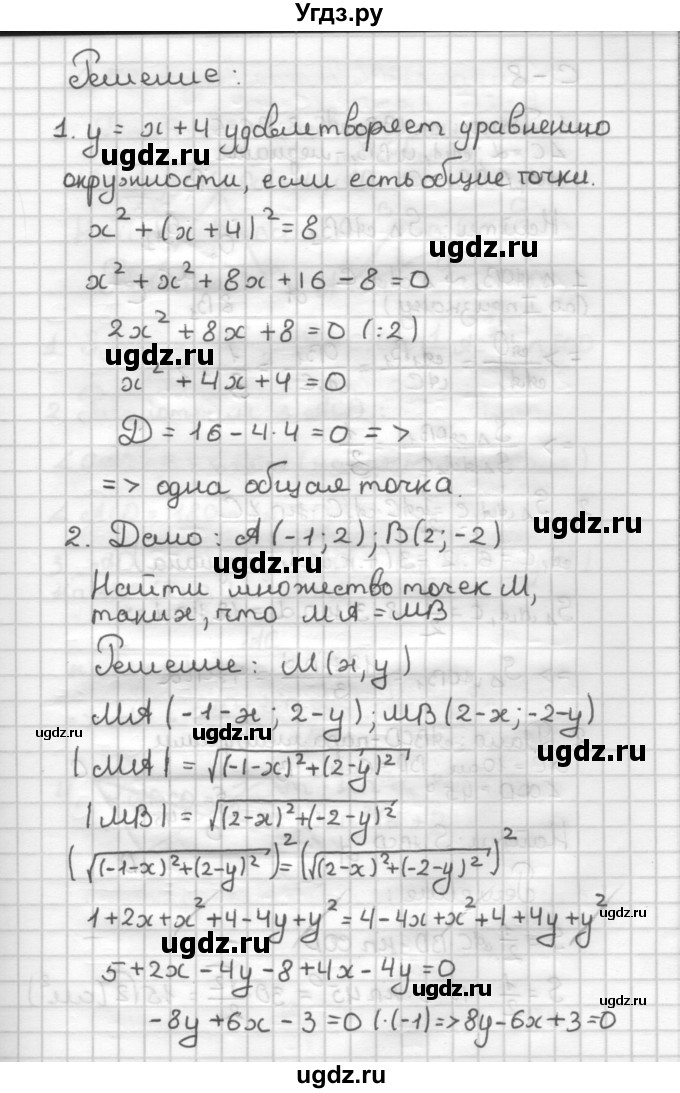 Угдз.ру
Решение:
1. y = x + 4 удовлетворяет уравнению
окружности, если есть общие точки.
x² + (x + 4)² = 8
x² + x² + 8x + 16 - 8 = 0
2x² + 8x + 8 = 0 (:2)
x² + 4x + 4 = 0
D = 16 - 4·4 = 0 =>
=> одна общая точка.
2. Дано: A(-1; 2); B(2; -2)
Найти множество точек M,
таких, что MA = MB
Решение: M(x, y)
MA(-1-x; 2-y); MB(2-x; -2-y)
|MA| = √((-1-x)²+(2-y)²)
|MB| = √((2-x)²+(-2-y)²)
(√((-1-x)²+(2-y)²))² = (√((2-x)²+(-2-y)²))²
1+2x+x²+4-4y+y² = 4-4x+x²+4+4y+y²
5+2x-4y-8+4x-4y=0
-8y+6x-3=0 (·(-1) => 8y-6x+3=0
ugdz.ru
ugdz.ru
ugdz.ru
ugdz.ru
ugdz.ru
ugdz.ru
ugdz.ru
ugdz.ru
ugdz.ru
ugdz.ru
ugdz.ru
ugdz.ru